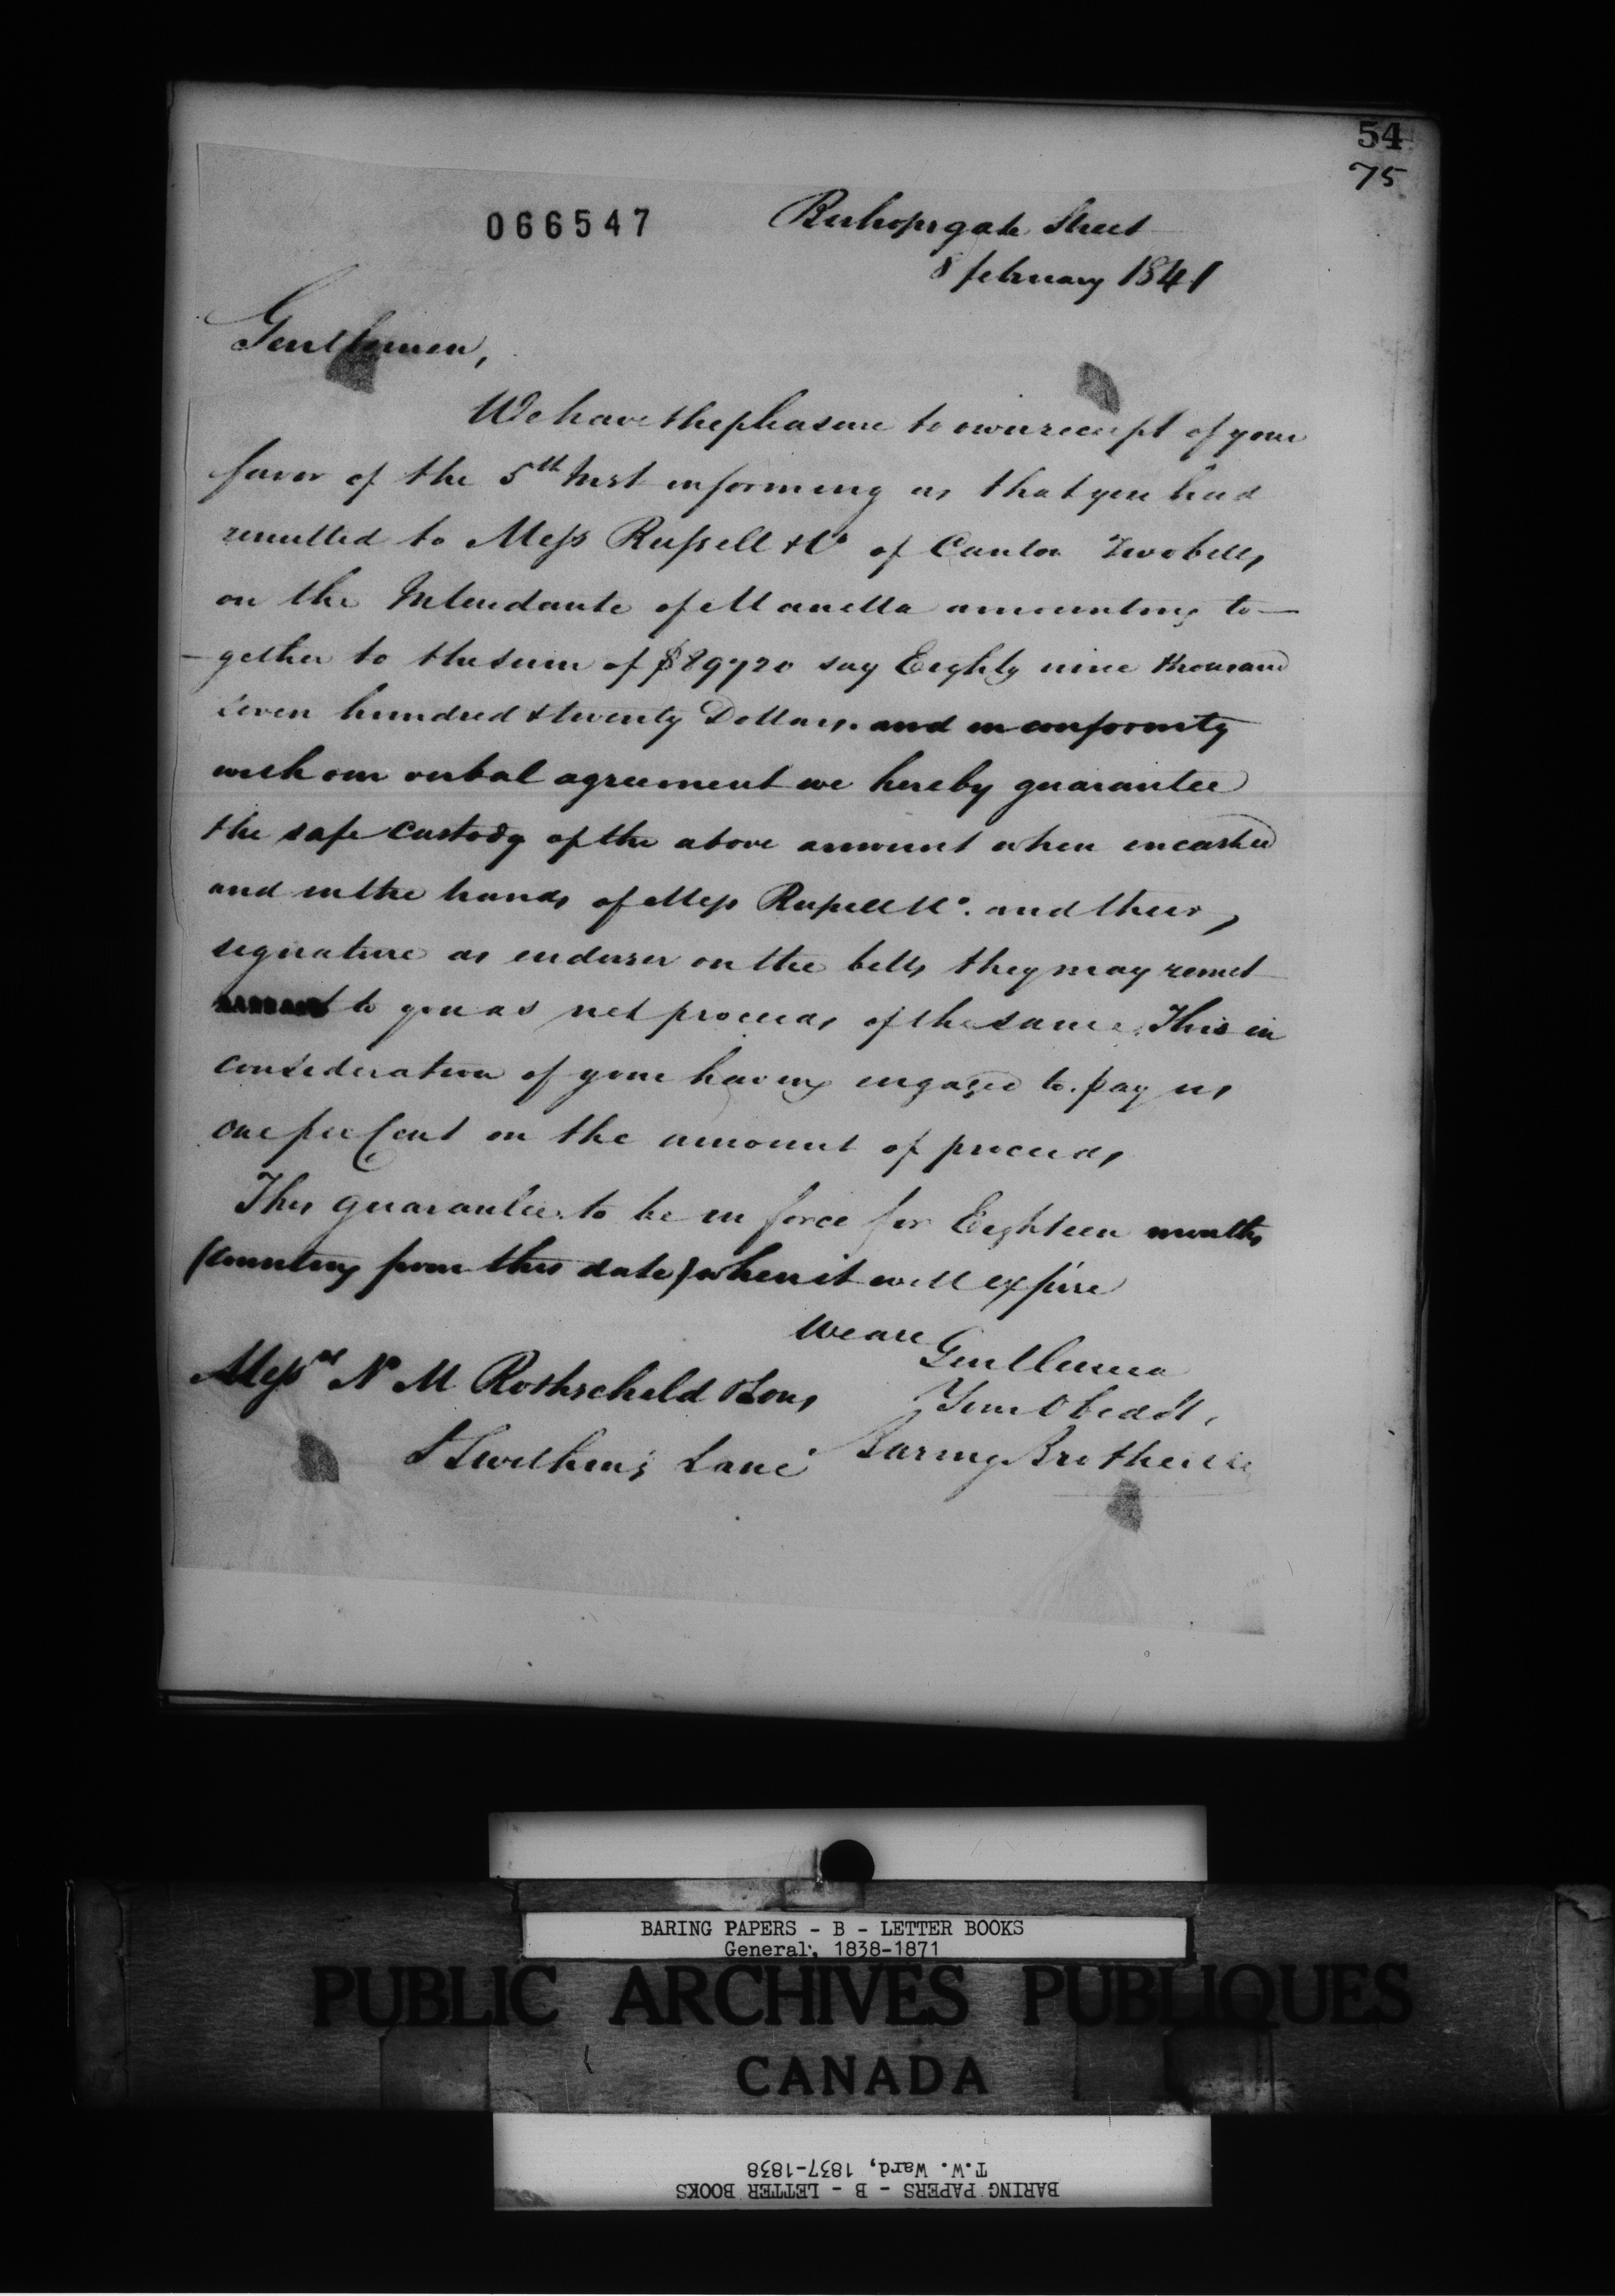 54
75
066547
Bishopsgate Street
8 february 1841
Gentlemen,
We have the pleasure to own receipt of your
favor of the 5th Inst informing us that you had
remitted to Mess Russell & Co of Canton Two bills
on the Intendante of Manella amounting to-
-gether to the sum of $89720 say Eighty nine thousand
seven hundred & twenty Dollars. and in conformity
with our verbal agreement we hereby guarantee
the safe custody of the above amount when encashed
and in the hands of Mess Russell & Co. and their
signature as endorser on the bills they may remit
to you as net proceeds of the same. This in
consideration of your having engaged to pay us
one per Cent on the amount of proceeds
This guarantee to be in force for Eighteen months
(counting from this date) when it will expire
We are
Gentlemen
Messrs N M Rothschild & Sons
Your Obedt
St Swithens Lane
Baring Brothers &
BARING PAPERS - B - LETTER BOOKS
General, 1838-1871
PUBLIC ARCHIVES PUBLIQUES
CANADA
T.W. Ward, 1837-1838
BARING PAPERS - B - LETTER BOOKS